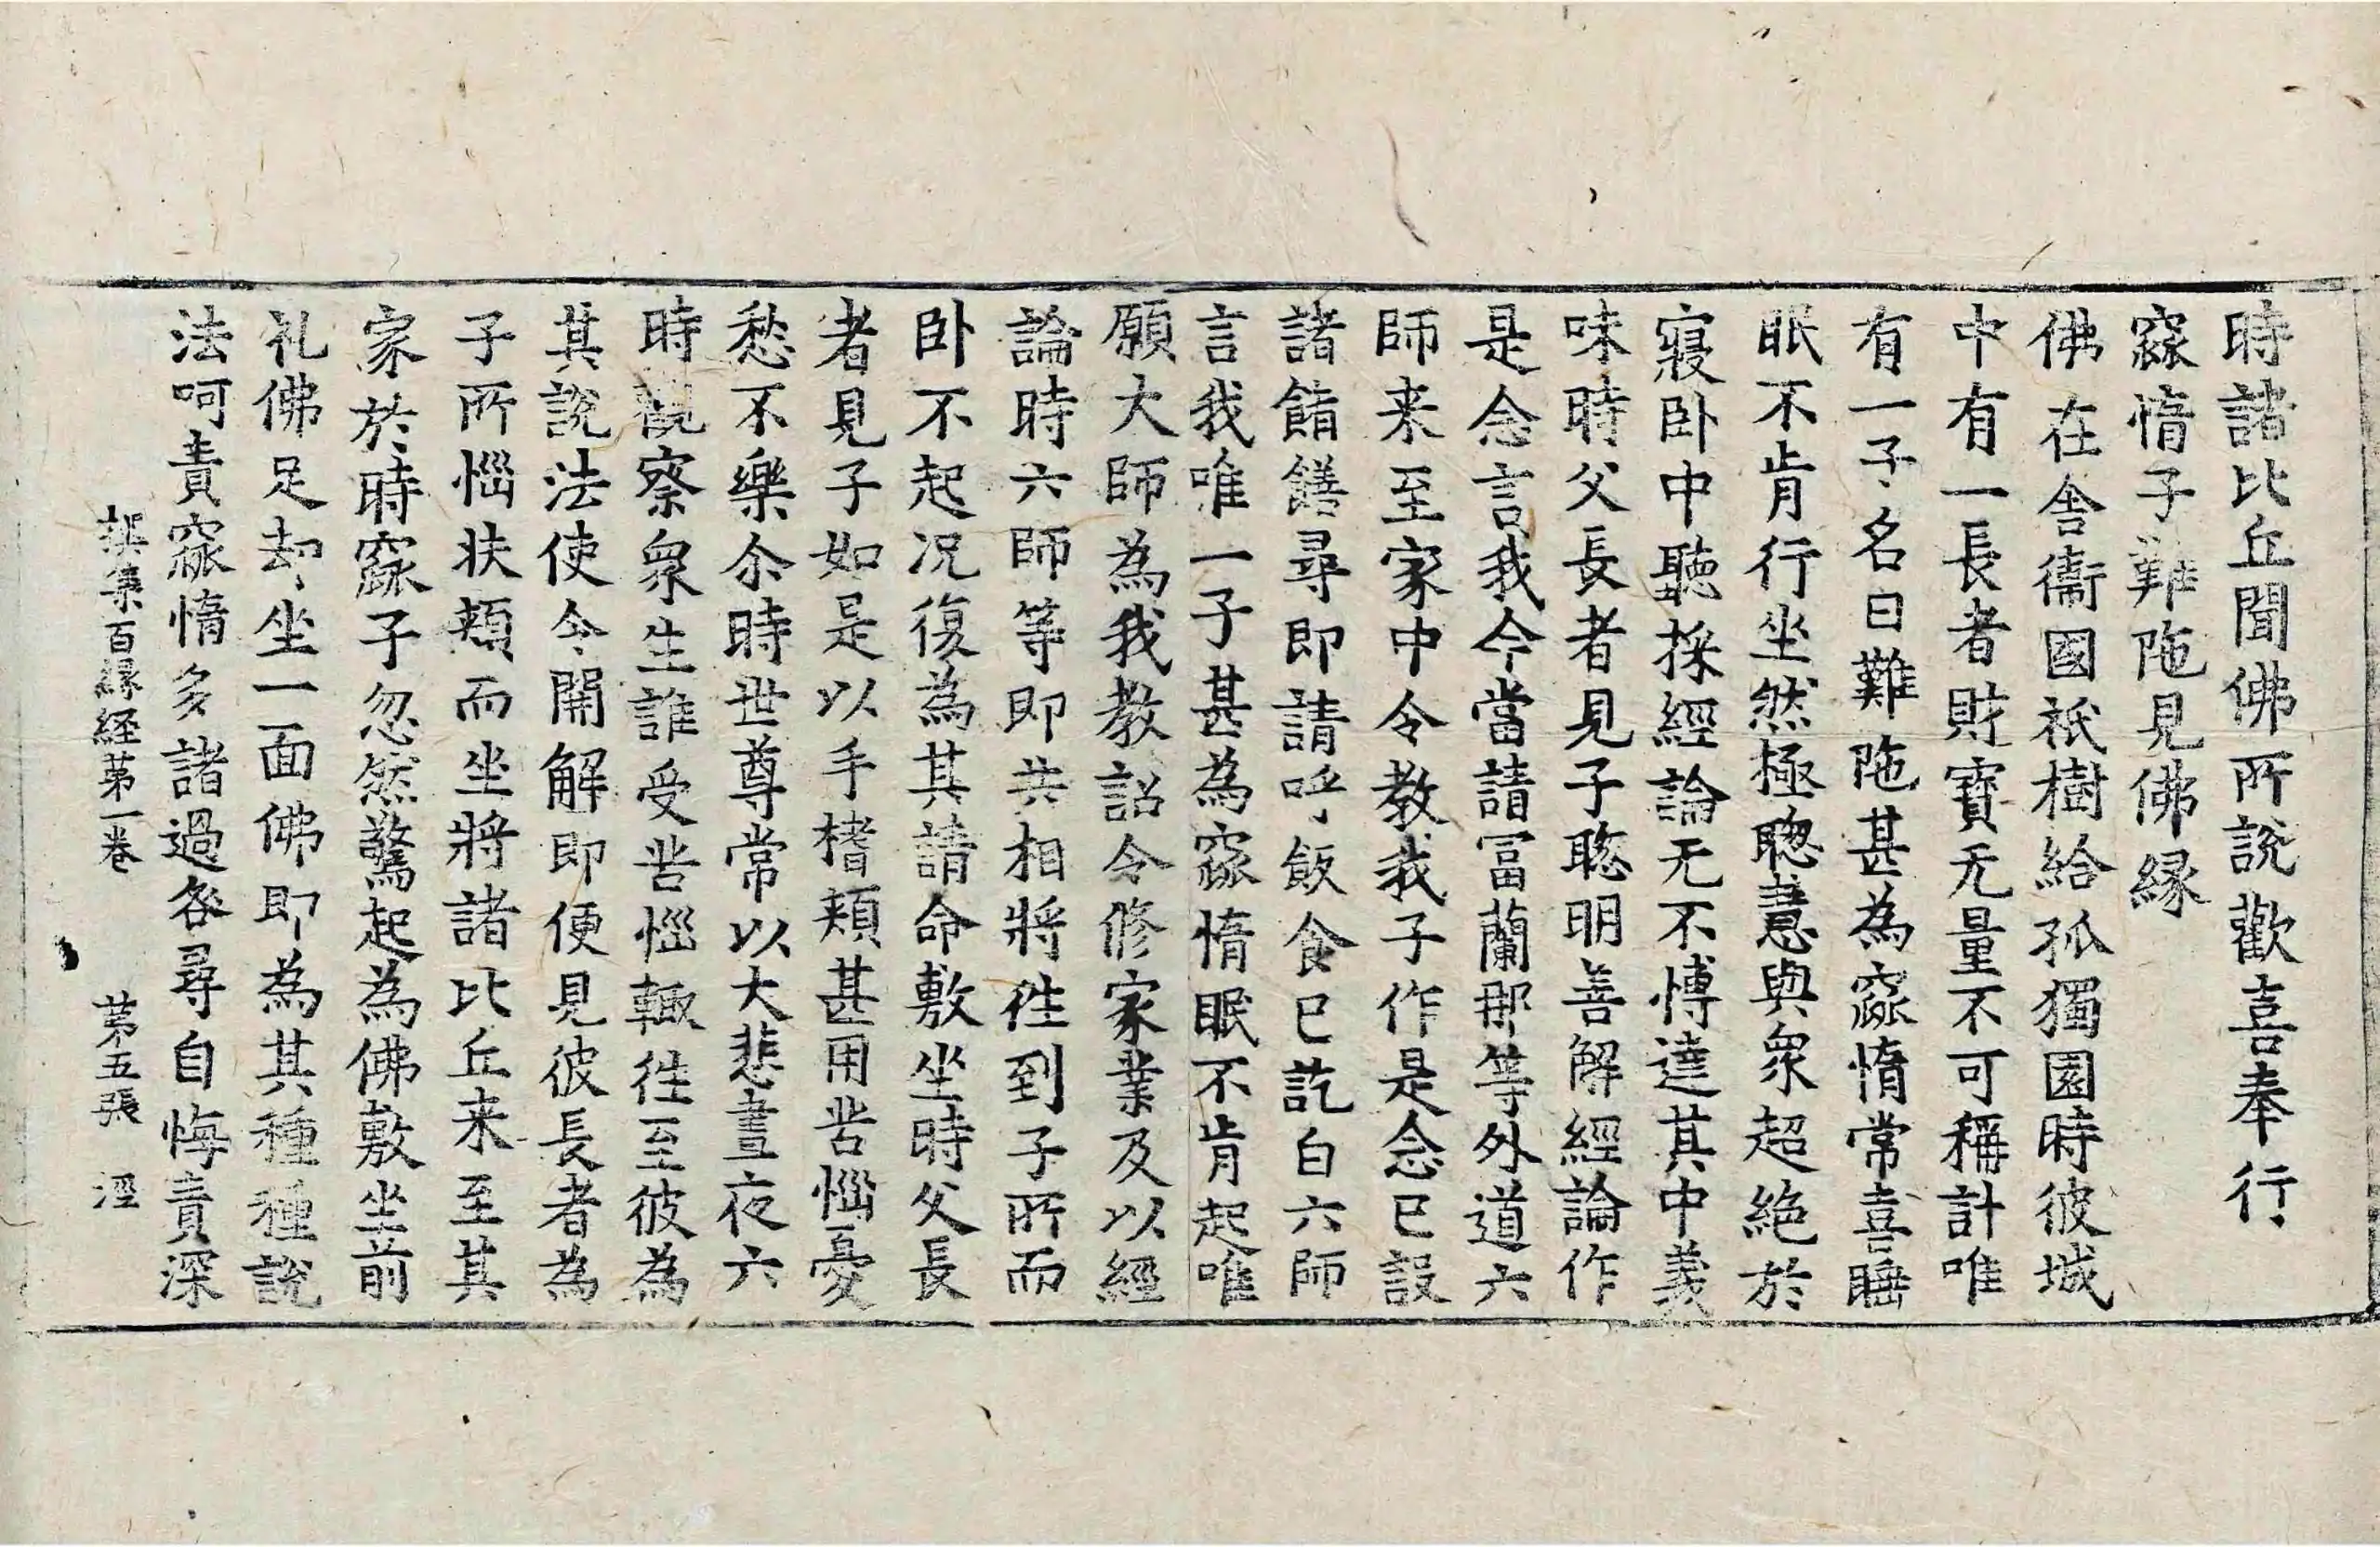 時諸比丘聞佛所說歡喜奉行
窳惰子難陁見佛縁
佛在舎衞國祇樹給孤獨園時彼城
中有一長者財寶无量不可稱計唯
有一子名曰難陁甚為窳惰常喜睡
眠不肯行坐然極聦慧與衆超絶於
寢卧中聽採經論无不愽達其中義
味時父長者見子聦明善解經論作
是念言我今當請冨蘭那等外道六
師来至家中令教我子作是念已設
諸餚饍尋即請呼飯食已訖白六師
言我唯一子甚為窳惰眠不肯起唯
願大師為我教詔令修家業及以經
論時六師等即共相將徃到子所而
卧不起况復為其請命敷坐時父長
者見子如是以手榰頬甚用苦惱憂
愁不樂尒時世尊常以大悲晝夜六
時觀察衆生誰受苦惱輙徃至彼為
其說法使令開解即便見彼長者為
子所惱扶頬而坐將諸比丘来至其
家於時窳子忽然驚起為佛敷坐前
礼佛足却坐一面佛即為其種種說
法呵責窳惰多諸過咎尋自悔責深
撰集百縁経苐一卷　苐五張　涇